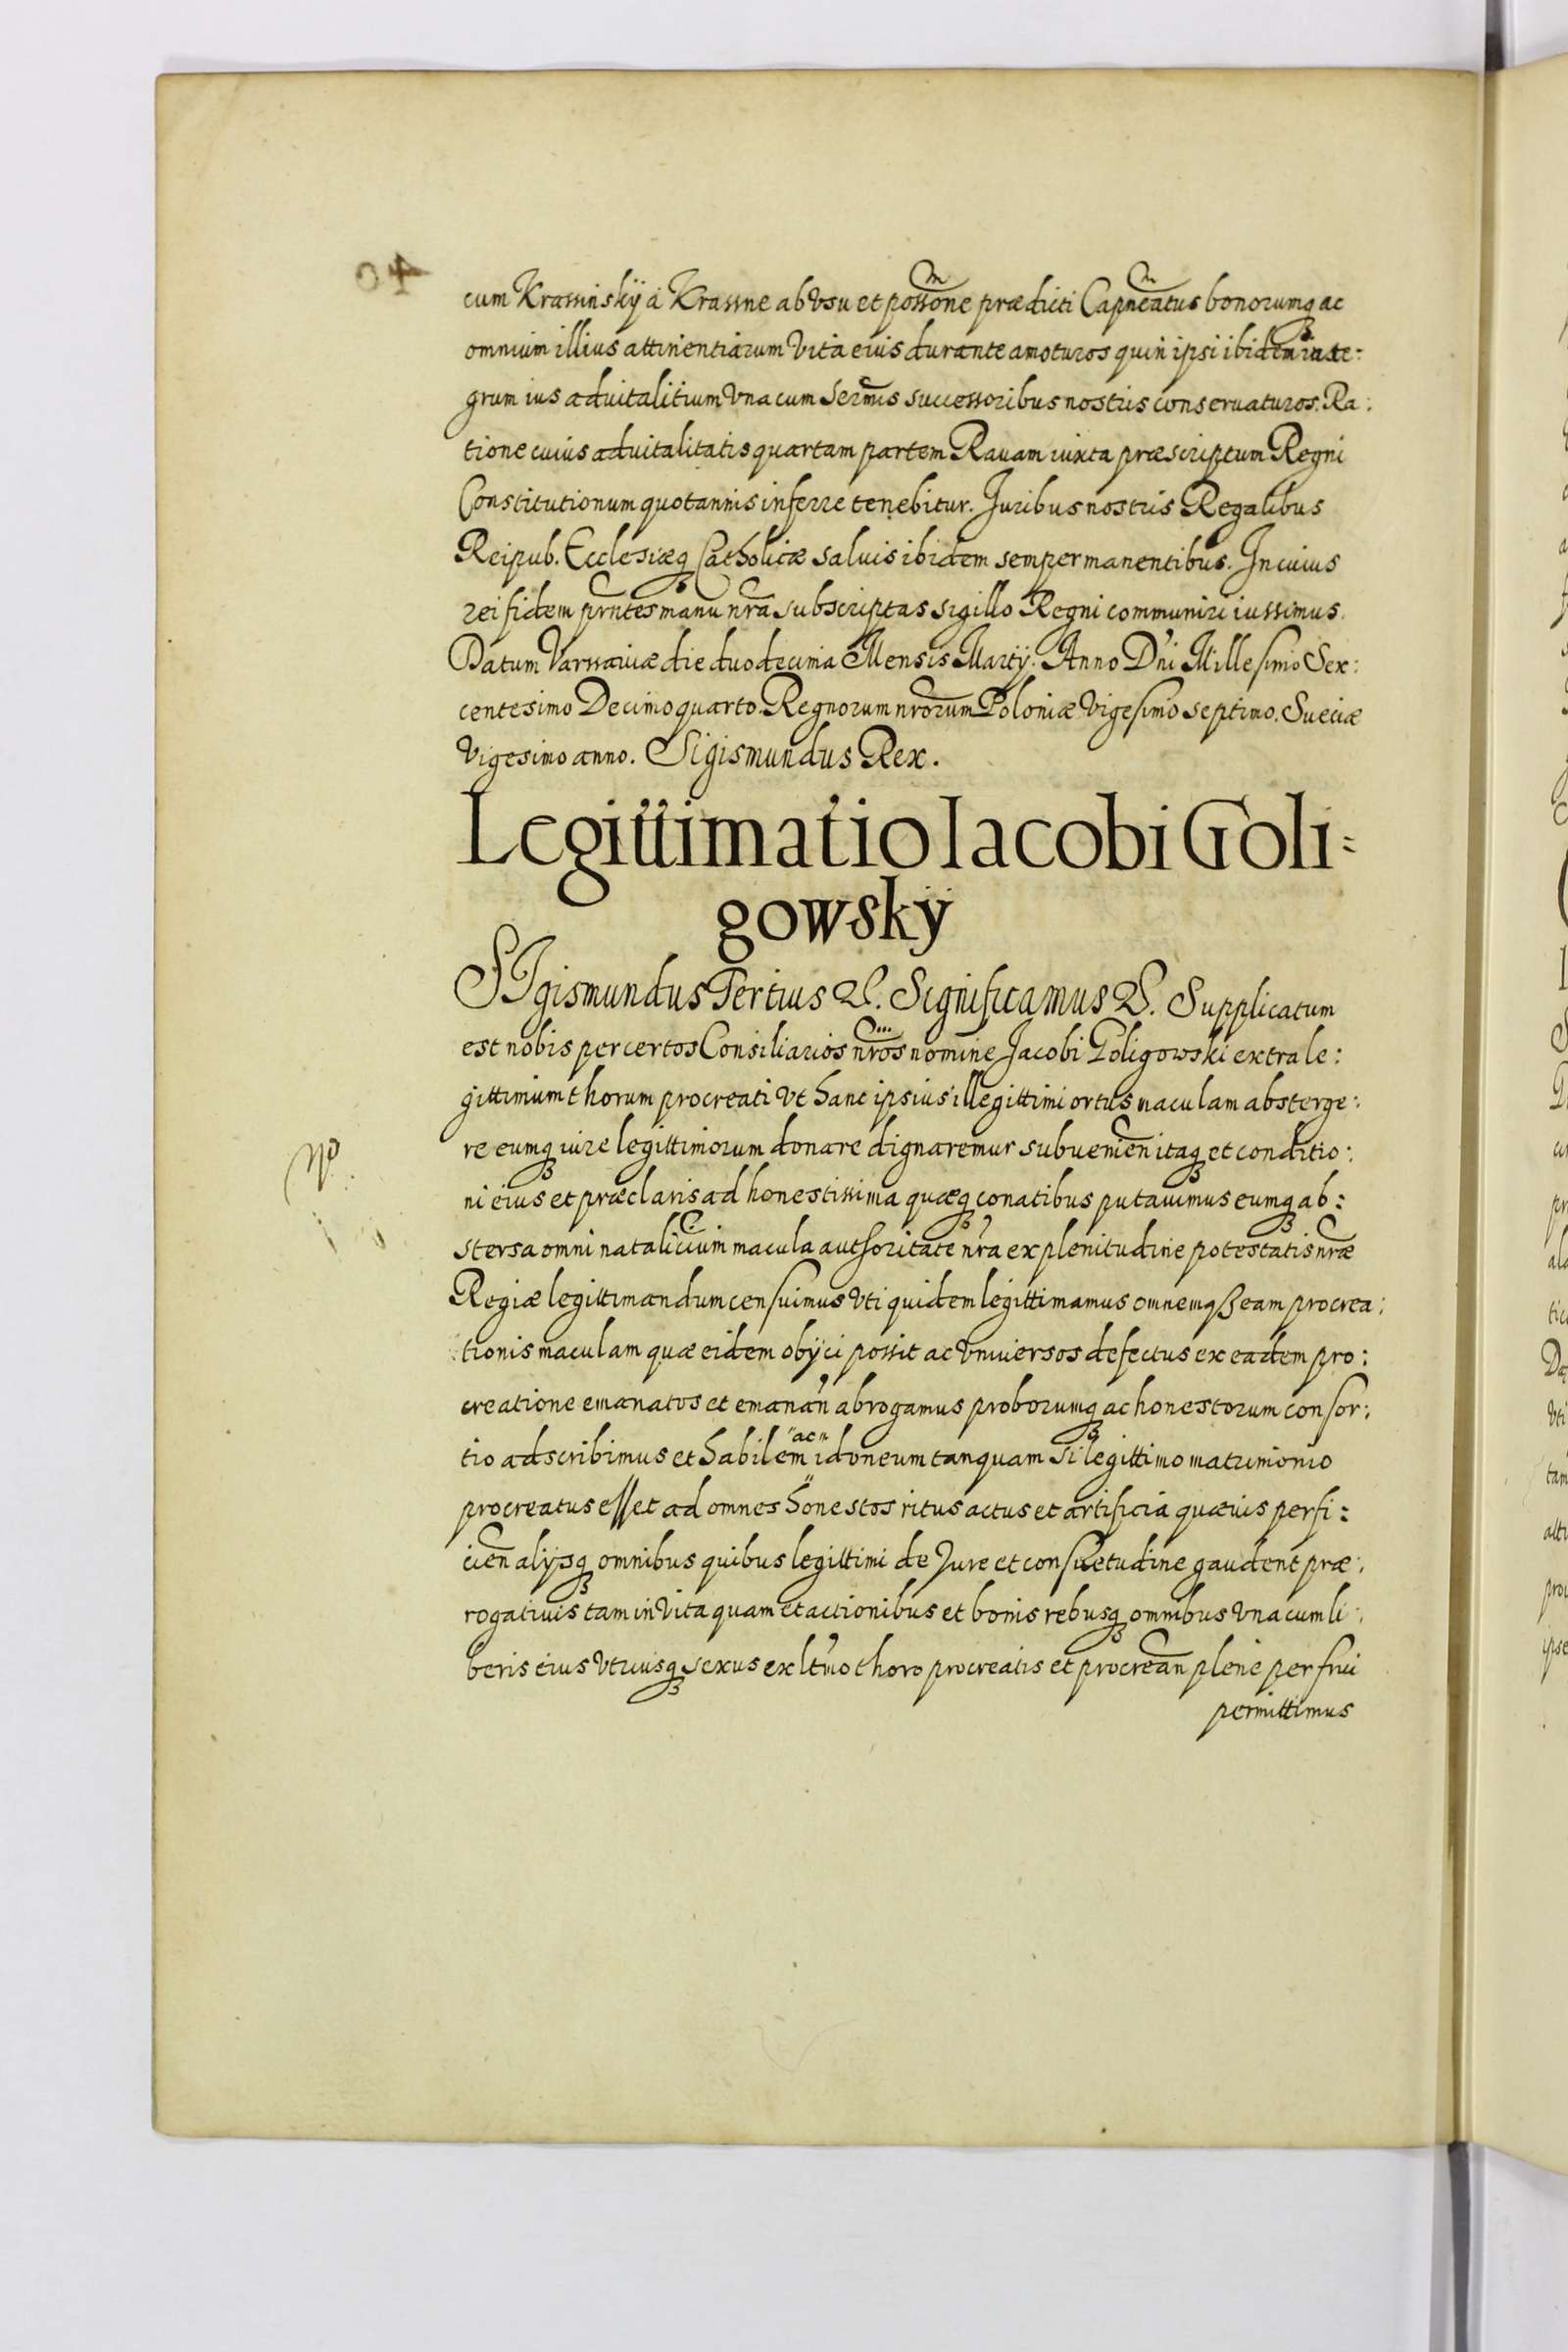 cum Krassinskÿ á Krassne ab vsu et possōne prædicti Capneātus bonorumq ac
omnium illius attinentiarum vita eius durante amoturos quin ipsi ibidem inte:
grum ius aduitalitium vna cum Sermis successoribus nostris conseruaturos. Ra:
tione cuius aduitalitatis quartam partem Rauam iuxta præscriptum Regni
Constitutionum quotannis inferre tenebitur. Juribus nostris Regalibus
Reipub. Ecclesiæq Catholicæ saluis ibidem semper manentibus. In cuius
rei fidem prntes manu nra subscriptas sigillo Regni communiri iussimus.
Datum Varssauiæ die duodecima Mensis Martÿ. Anno Dni Millesimo Sex:
centesimo Decimoquarto. Regnorum nrorum Poloniæ Vigesimo septimo. Sueciæ
Vigesimo anno. Sigismundus Rex.
Legittimatio Iacobi Goli=
gowskÿ
SIgismundus Tertius &. Significamus &. Supplicatum
est nobis per certos Consiliarios nros nomine Jacobi Goligowski extra le:
gittimum thorum procreati vt hanc ipsius illegittimi ortus maculam absterge:
re eumq iure legittimorum donare dignaremur subuenien itaq et conditio:
ni eius et præclaris ad honestissima quæq conatibus putauimus eumq ab:
stersa omni natalicium macula authoritate nra ex plenitudine potestatis nræ
Regiæ legittimandum censuimus vti quidem legittimamus omnemq eam procrea:
tionis maculam quæ eidem obÿci possit ac vniuersos defectus ex eadem pro:
creatione emanatos et emanan abrogamus proborumq ac honestorum consor:
tio adscribimus et habilem "ac" idoneum tanquam si legittimo matrimonio
procreatus esset ad omnes honestos ritus actus et artificia quæuis perfi:
cien alijsq omnibus quibus legittimi de Jure et consuetudine gaudent præ:
rogatiuis tam in vita quam et actionibus et bonis rebusq omnibus vna cum li:
beris eius vtriusq sexus ex ltmo thoro procreatis et procrean plene perfrui
permittimus